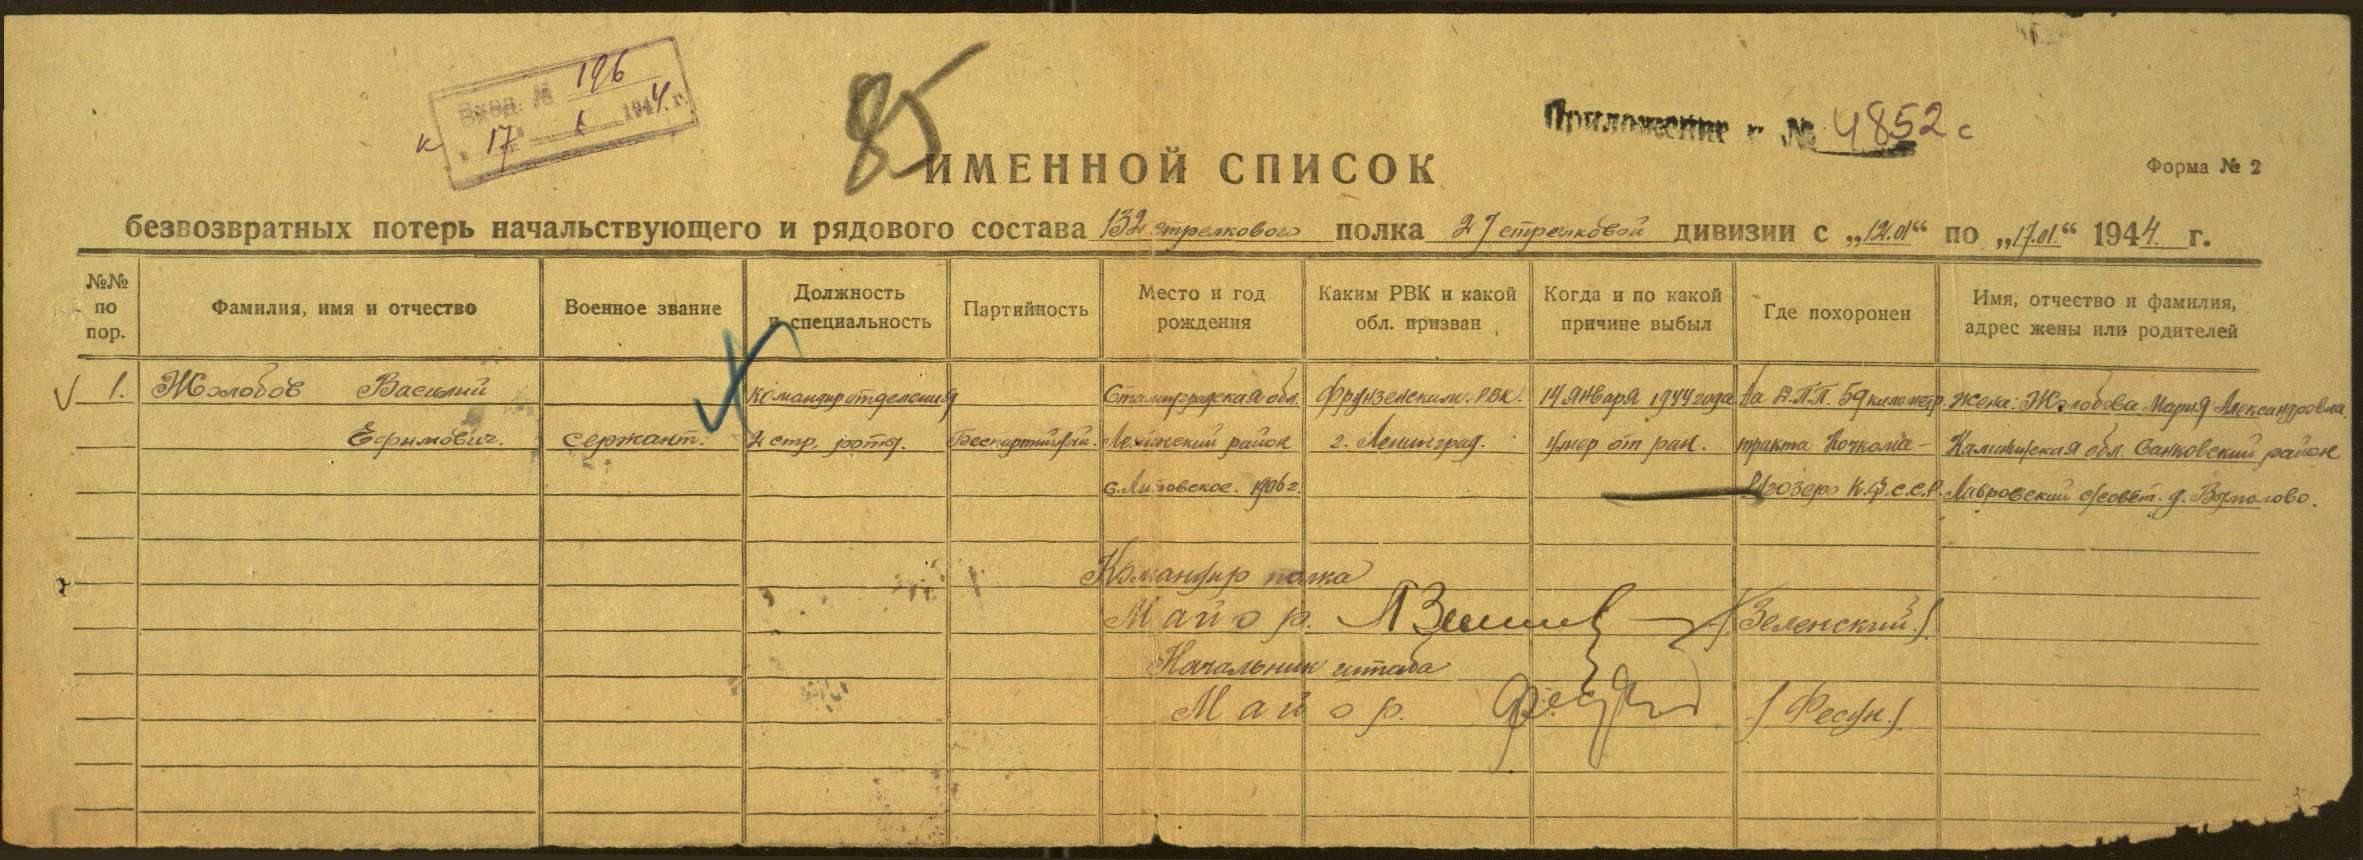 Вход. № 196
к 17 6 1944 г.
85
Приложение к № 4852 с
ИМЕННОЙ СПИСОК
Форма № 2
безвозвратных потерь начальствующего и рядового состава 132 стрелкового полка 27 стрелковой дивизии с „12.01“ по „17.01“ 1944 г.
№№ по пор.
Фамилия, имя и отчество
Военное звание
Должность и специальность
Партийность
Место и год рождения
Каким РВК и какой обл. призван
Когда и по какой причине выбыл
Где похоронен
Имя, отчество и фамилия, адрес жены или родителей
1. Жолобов Василий командир отделения Сталинградская обл. Фрунзенским РВК. 14 января 1944 года На П.П. 59 километр Жена: Жолобова Мария Александровна
Ефимович. сержант. 2 стр. роты. Беспартийный. Ленинский район г. Ленинград. умер от ран. тракта Кочкома- Калининская обл. Санковский район
с. 1906 г. К.Ф.С.С.Р. Лавровский с/совет. д.
Командир полка
Майор. /Зеленский/
Начальник штаба
Майор. /Фесун./